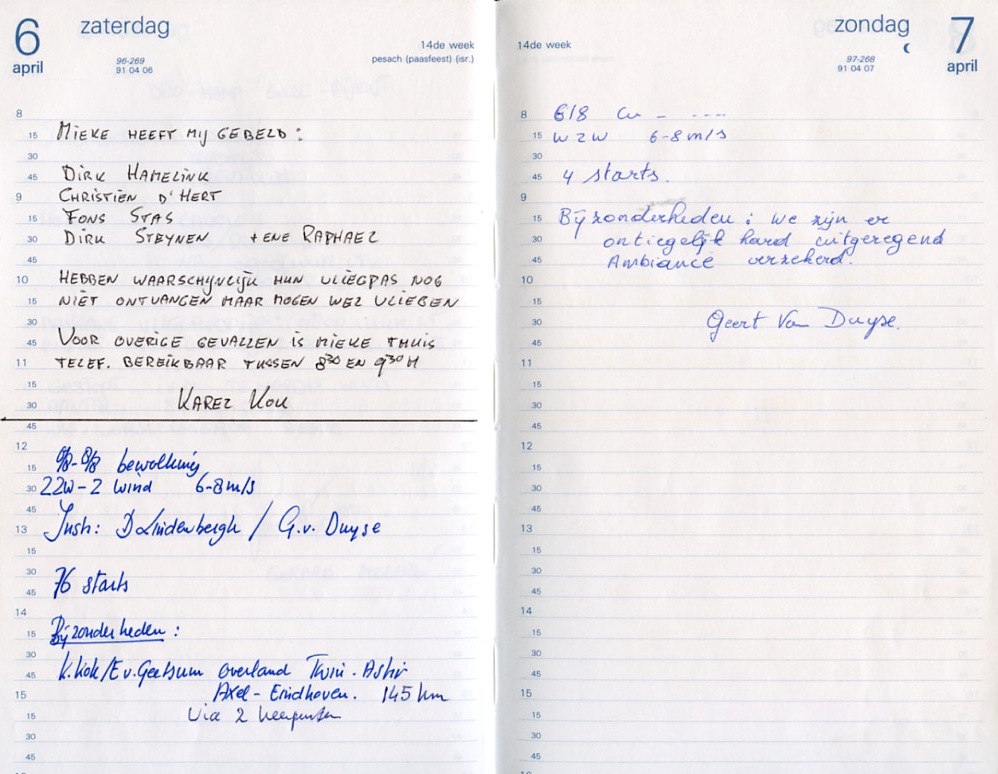 6 zaterdag
april
96-269
91 04 06
14de week
pesach (paasfeest) (isr.)
MIEKE HEEFT MIJ GEBELD :
DIRK HAMELINK
CHRISTIËN D'HERT
FONS STAS
DIRK STEYNEN + ENE RAPHAEL
HEBBEN WAARSCHIJNLIJK HUN VLIEGPAS NOG
NIET ONTVANGEN MAAR MOGEN WEL VLIEGEN
VOOR OVERIGE GEVALLEN IS MIEKE THUIS
TELEF. BEREIKBAAR TUSSEN 8³⁰ EN 9³⁰ H
KAREL KOK
8/8 bewolking
ZZW-Z wind 6-8 m/s
Instr: D Lindenbergh / G.v. Duyse
76 starts
Bijzonderheden :
K.Kok/E v. Geetsum overland Twin-Astir
Axel - Eindhoven. 145 km
Via 2 keerpunten
zondag 7
april
97-268
91 04 07
14de week
6/8 Cu - ----
WZW 6-8 m/s
4 starts.
Bijzonderheden : we zijn er
ontiegelijk hard uitgeregend
Ambiance verzekerd.
Geert Van Duyse.
8
15
30
45
9
15
30
45
10
15
30
45
11
15
30
45
12
15
30
45
13
15
30
45
14
15
30
45
15
15
30
45
8
15
30
45
9
15
30
45
10
15
30
45
11
15
30
45
12
15
30
45
13
15
30
45
14
15
30
45
15
15
30
45